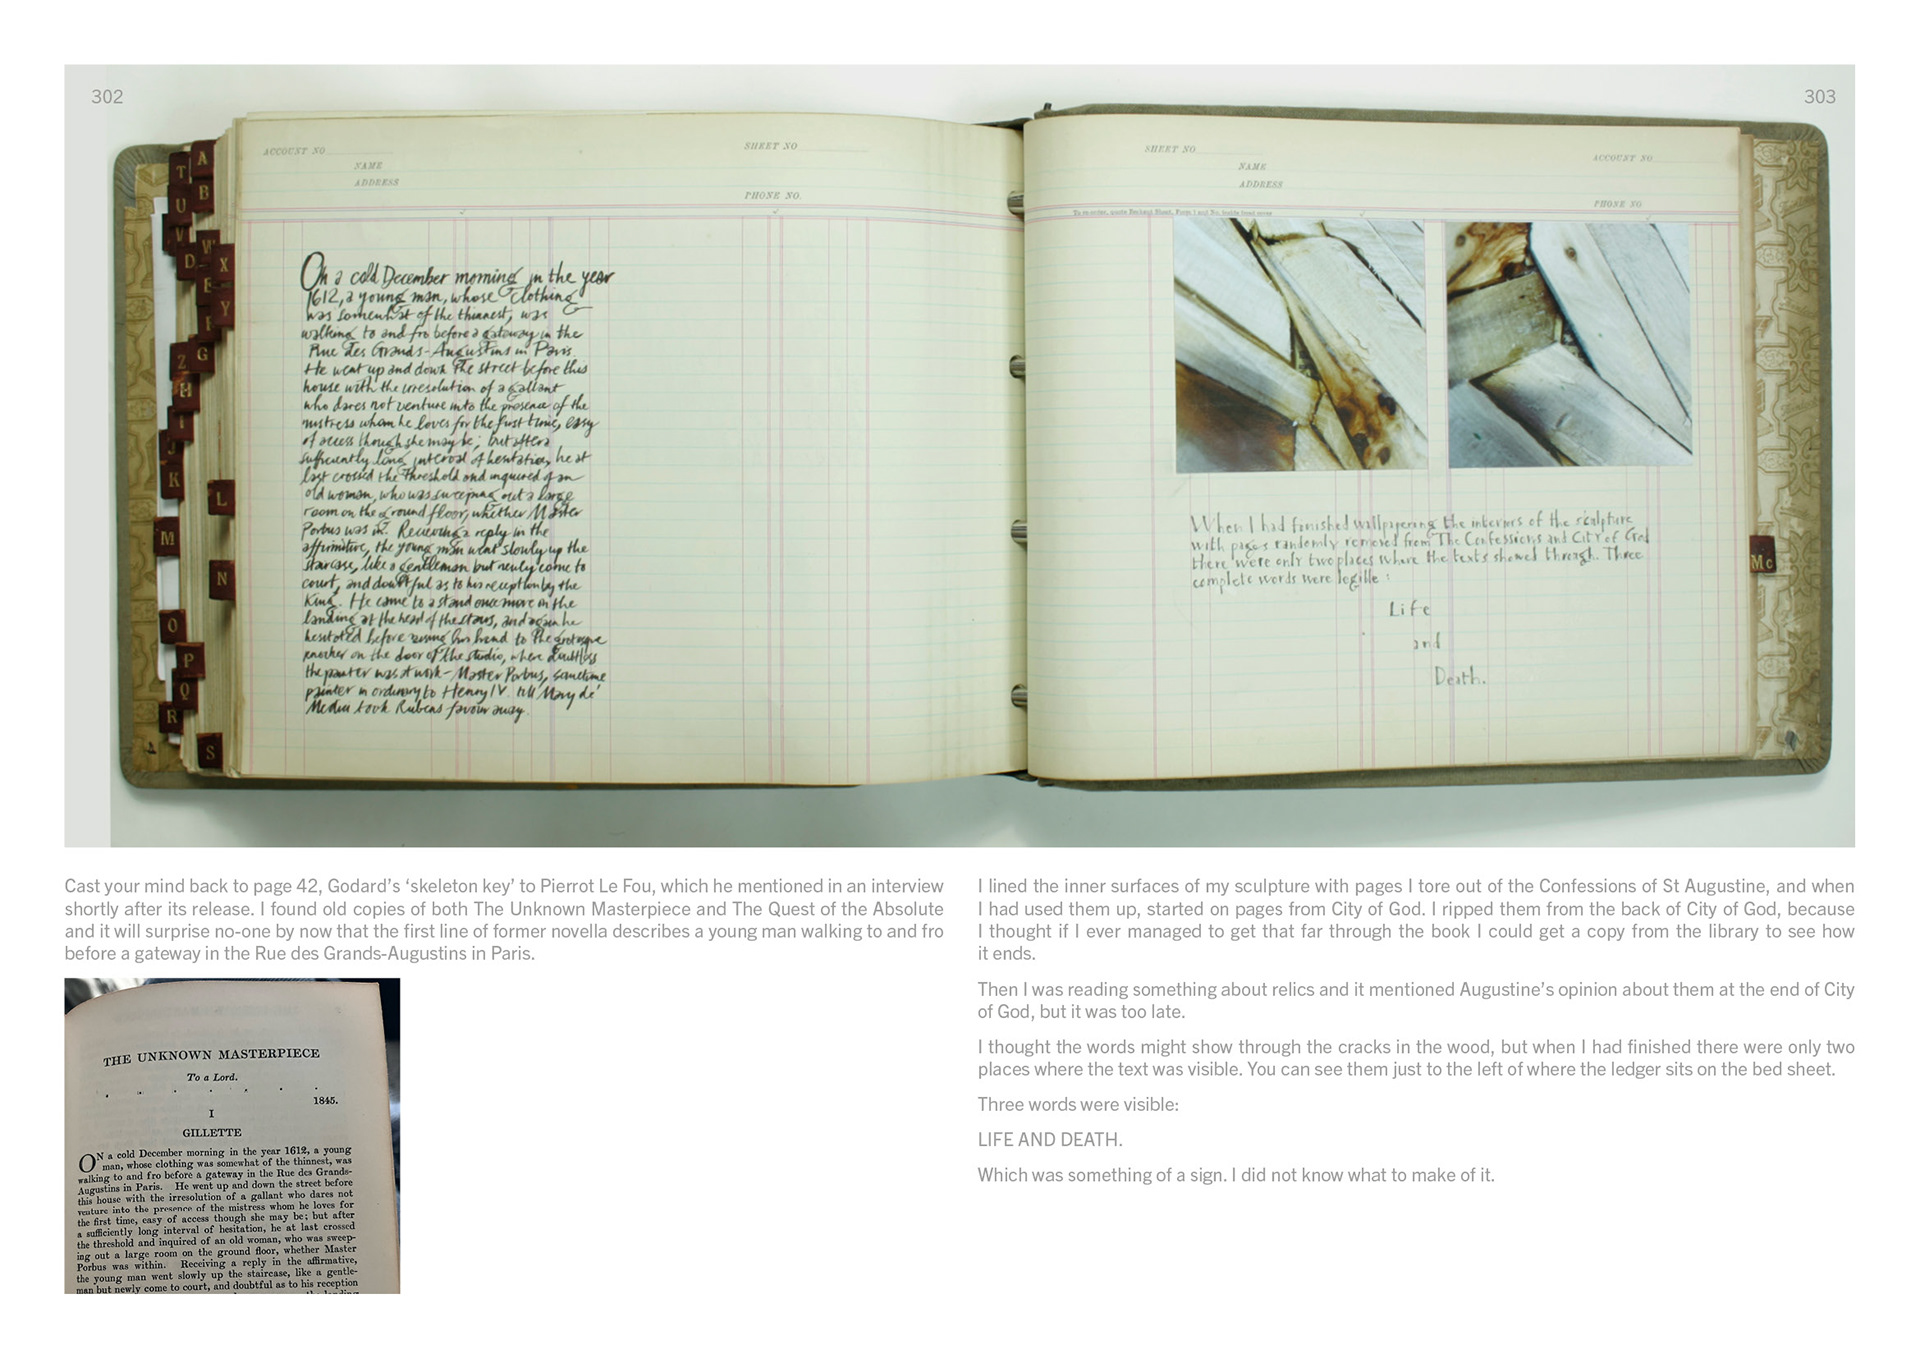 302
303
ACCOUNT NO
SHEET NO
NAME
ADDRESS
PHONE NO.
A
T
B
U
V
W
D
X
E
Y
F
G
Z
H
I
J
K
L
M
N
O
P
Q
R
S
On a cold December morning in the year
1612, a young man, whose clothing
was somewhat of the thinnest, was
walking to and fro before a gateway in the
Rue des Grands-Augustins in Paris.
He went up and down the street before this
house with the irresolution of a gallant
who dares not venture into the presence of the
mistress whom he loves for the first time, easy
of access though she may be; but after a
sufficiently long interval of hesitation, he at
last crossed the threshold and inquired of an
old woman, who was sweeping out a large
room on the ground floor, whether Master
Porbus was in. Receiving a reply in the
affirmitive, the young man went slowly up the
staircase, like a gentleman but newly come to
court, and doubtful as to his reception by the
King. He came to a stand once more on the
landing at the head of the stairs, and again he
hesitated before raising his hand to the grotesque
knocker on the door of the studio, where doubtless
the painter was at work - Master Porbus, sometime
painter in ordinary to Henry IV. till Mary de'
Medici took Rubens favour away.
SHEET NO
ACCOUNT NO
NAME
ADDRESS
PHONE NO
Mc
When I had finished wallpapering the interiors of the sculpture
with pages randomly removed from The Confessions and City of God
there were only two places where the texts showed through. Three
complete words were legible :
Life
and
Death.
Cast your mind back to page 42, Godard’s ‘skeleton key’ to Pierrot Le Fou, which he mentioned in an interview
shortly after its release. I found old copies of both The Unknown Masterpiece and The Quest of the Absolute
and it will surprise no-one by now that the first line of former novella describes a young man walking to and fro
before a gateway in the Rue des Grands-Augustins in Paris.
THE UNKNOWN MASTERPIECE
To a Lord.
1845.
I
GILLETTE
ON a cold December morning in the year 1612, a young
man, whose clothing was somewhat of the thinnest, was
walking to and fro before a gateway in the Rue des Grands-
Augustins in Paris. He went up and down the street before
this house with the irresolution of a gallant who dares not
venture into the presence of the mistress whom he loves for
the first time, easy of access though she may be; but after
a sufficiently long interval of hesitation, he at last crossed
the threshold and inquired of an old woman, who was sweep-
ing out a large room on the ground floor, whether Master
Porbus was within. Receiving a reply in the affirmative,
the young man went slowly up the staircase, like a gentle-
man but newly come to court, and doubtful as to his reception
I lined the inner surfaces of my sculpture with pages I tore out of the Confessions of St Augustine, and when
I had used them up, started on pages from City of God. I ripped them from the back of City of God, because
I thought if I ever managed to get that far through the book I could get a copy from the library to see how
it ends.
Then I was reading something about relics and it mentioned Augustine’s opinion about them at the end of City
of God, but it was too late.
I thought the words might show through the cracks in the wood, but when I had finished there were only two
places where the text was visible. You can see them just to the left of where the ledger sits on the bed sheet.
Three words were visible:
LIFE AND DEATH.
Which was something of a sign. I did not know what to make of it.